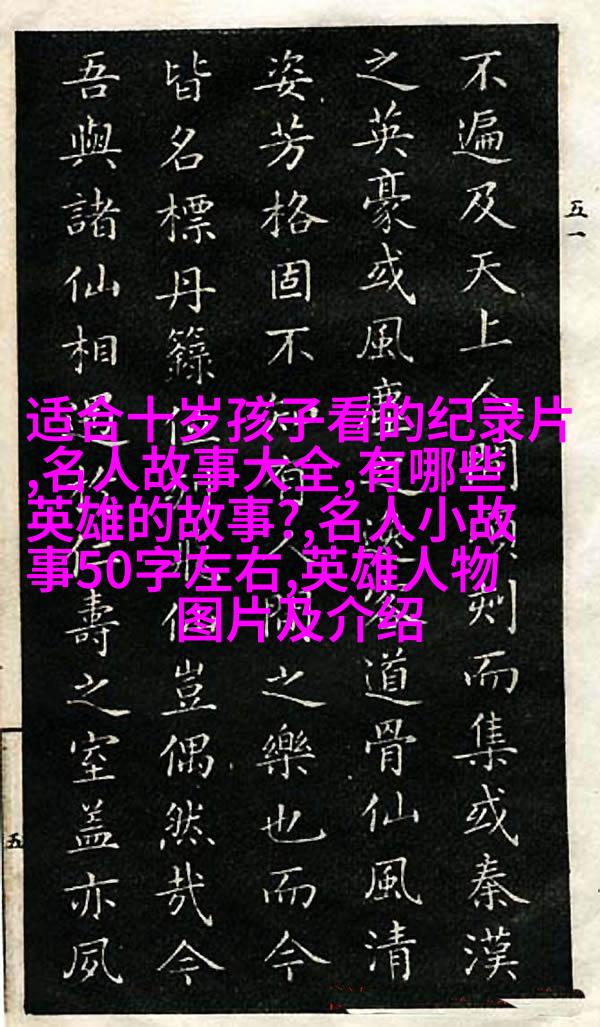 适合十岁孩子看的纪录片
,名人故事大全,有哪些
英雄的故事?,名人小故
事50字左右,英雄人物
图片及介绍
五一
不遍及天上人間則而集或秦漢
之英豪或風塵之客道骨仙風清
姿芳格固不知有人間之樂也而今
皆名標丹籙位豈偶然哉今
吾與諸仙相遇於仁壽之室蓋亦夙
五